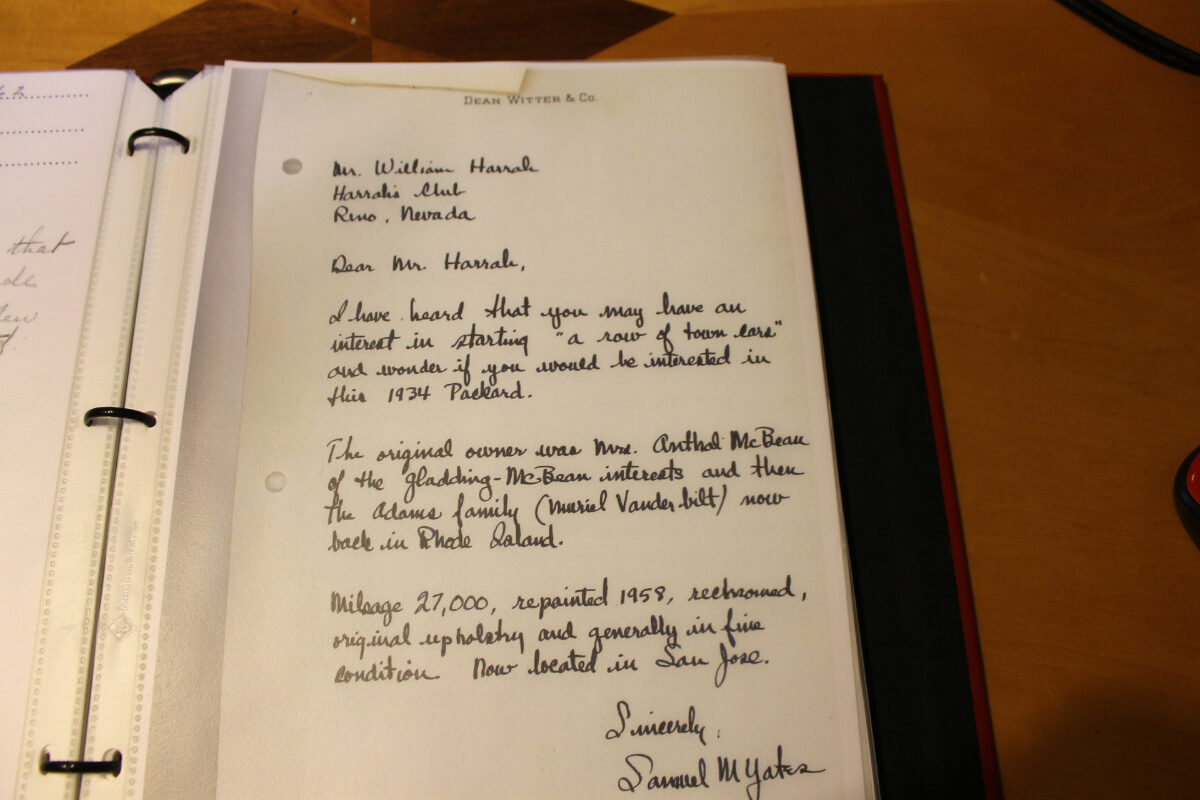 DEAN WITTER & CO.
Mr. William Harrah
Harrah's Club
Reno, Nevada
Dear Mr. Harrah,
I have heard that you may have an
interest in starting "a row of town cars"
and wonder if you would be interested in
this 1934 Packard.
The original owner was Mrs. Anthol McBean
of the Gladding-McBean interests and then
the Adams family (Muriel Vanderbilt) now
back in Rhode Island.
Mileage 27,000, repainted 1958, rechromed,
original upholstry and generally in fine
condition. Now located in San Jose.
Sincerely,
Samuel M Yates
that